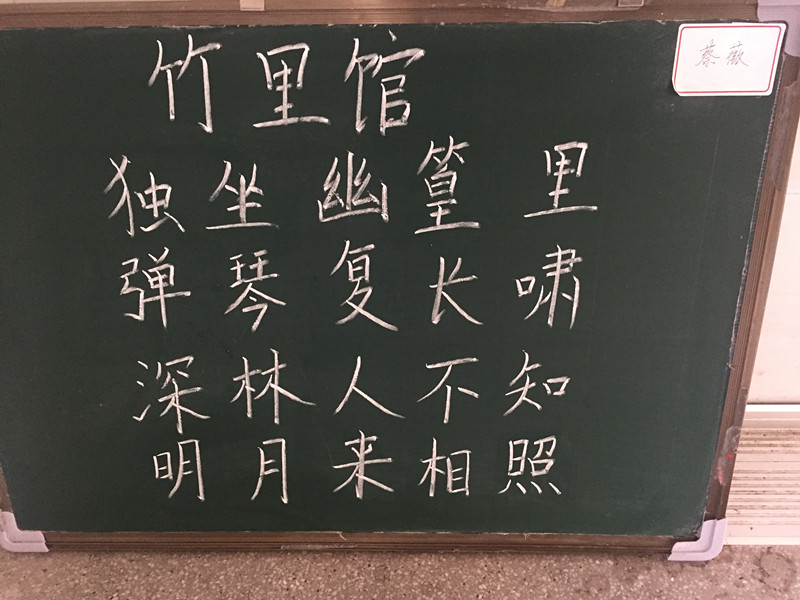 竹里馆
蔡薇
独坐幽篁里
弹琴复长啸
深林人不知
明月来相照